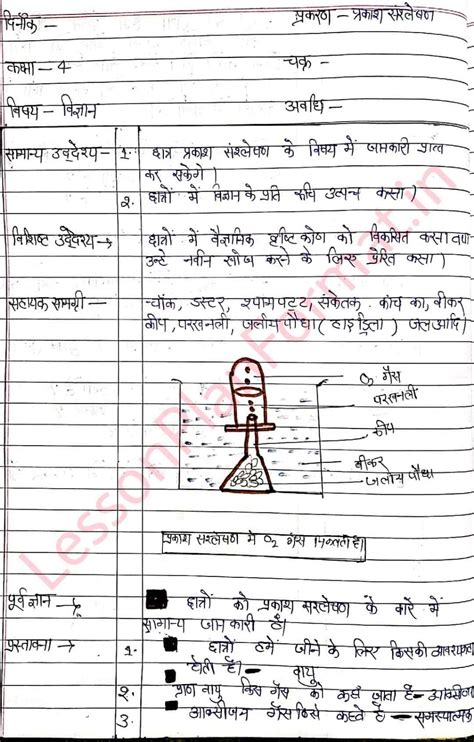 दिनाँक - प्रकरण - प्रकाश संश्लेषण
कक्षा - 4 चक्र -
विषय - विज्ञान अवधि -
सामान्य उद्देश्य - 1. छात्र प्रकाश संश्लेषण के विषय में जानकारी प्राप्त
कर सकेंगे।
2. छात्रों में विज्ञान के प्रति रुचि उत्पन्न करना।
विशिष्ट उद्देश्य → छात्रों में वैज्ञानिक दृष्टिकोण को विकसित करना तथा
उन्हे नवीन खोज करने के लिए प्रेरित करना।
सहायक सामग्री - चॉक, डस्टर, श्यामपट्ट, संकेतक काँच का, बीकर
कीप, परखनली, जलीय पौधा (हाइड्रिला) जल आदि।
O₂ गैस
परखनली
कीप
बीकर
जलीय पौधा
प्रकाश संश्लेषण मे O₂ गैस निकलती है।
पूर्व ज्ञान - छात्रों को प्रकाश संश्लेषण के बारे में
सामान्य जानकारी है।
प्रस्तावना → 1. छात्रों हमें जीने के लिए किसकी आवश्यकता
होती है। - वायु
2. प्राण वायु किस गैस को कहा जाता है - ऑक्सीजन
3. ऑक्सीजन गैस किसे कहते है - समस्यात्मक
LessonPlanFormat.in